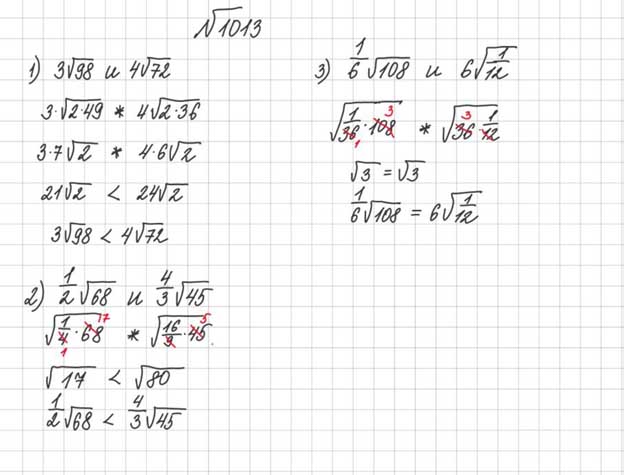 №1013
1) 3√98 и 4√72
3·√2·49 * 4√2·36
3·7√2 * 4·6√2
21√2 < 24√2
3√98 < 4√72
2) 1/2 √68 и 4/3 √45
√1/4 · 68 * √16/9 · 45
1 17 5
√17 < √80
1/2 √68 < 4/3 √45
3) 1/6 √108 и 6√1/12
√1/36 · 108 * √36 · 1/12
1 3 3
√3 = √3
1/6 √108 = 6√1/12